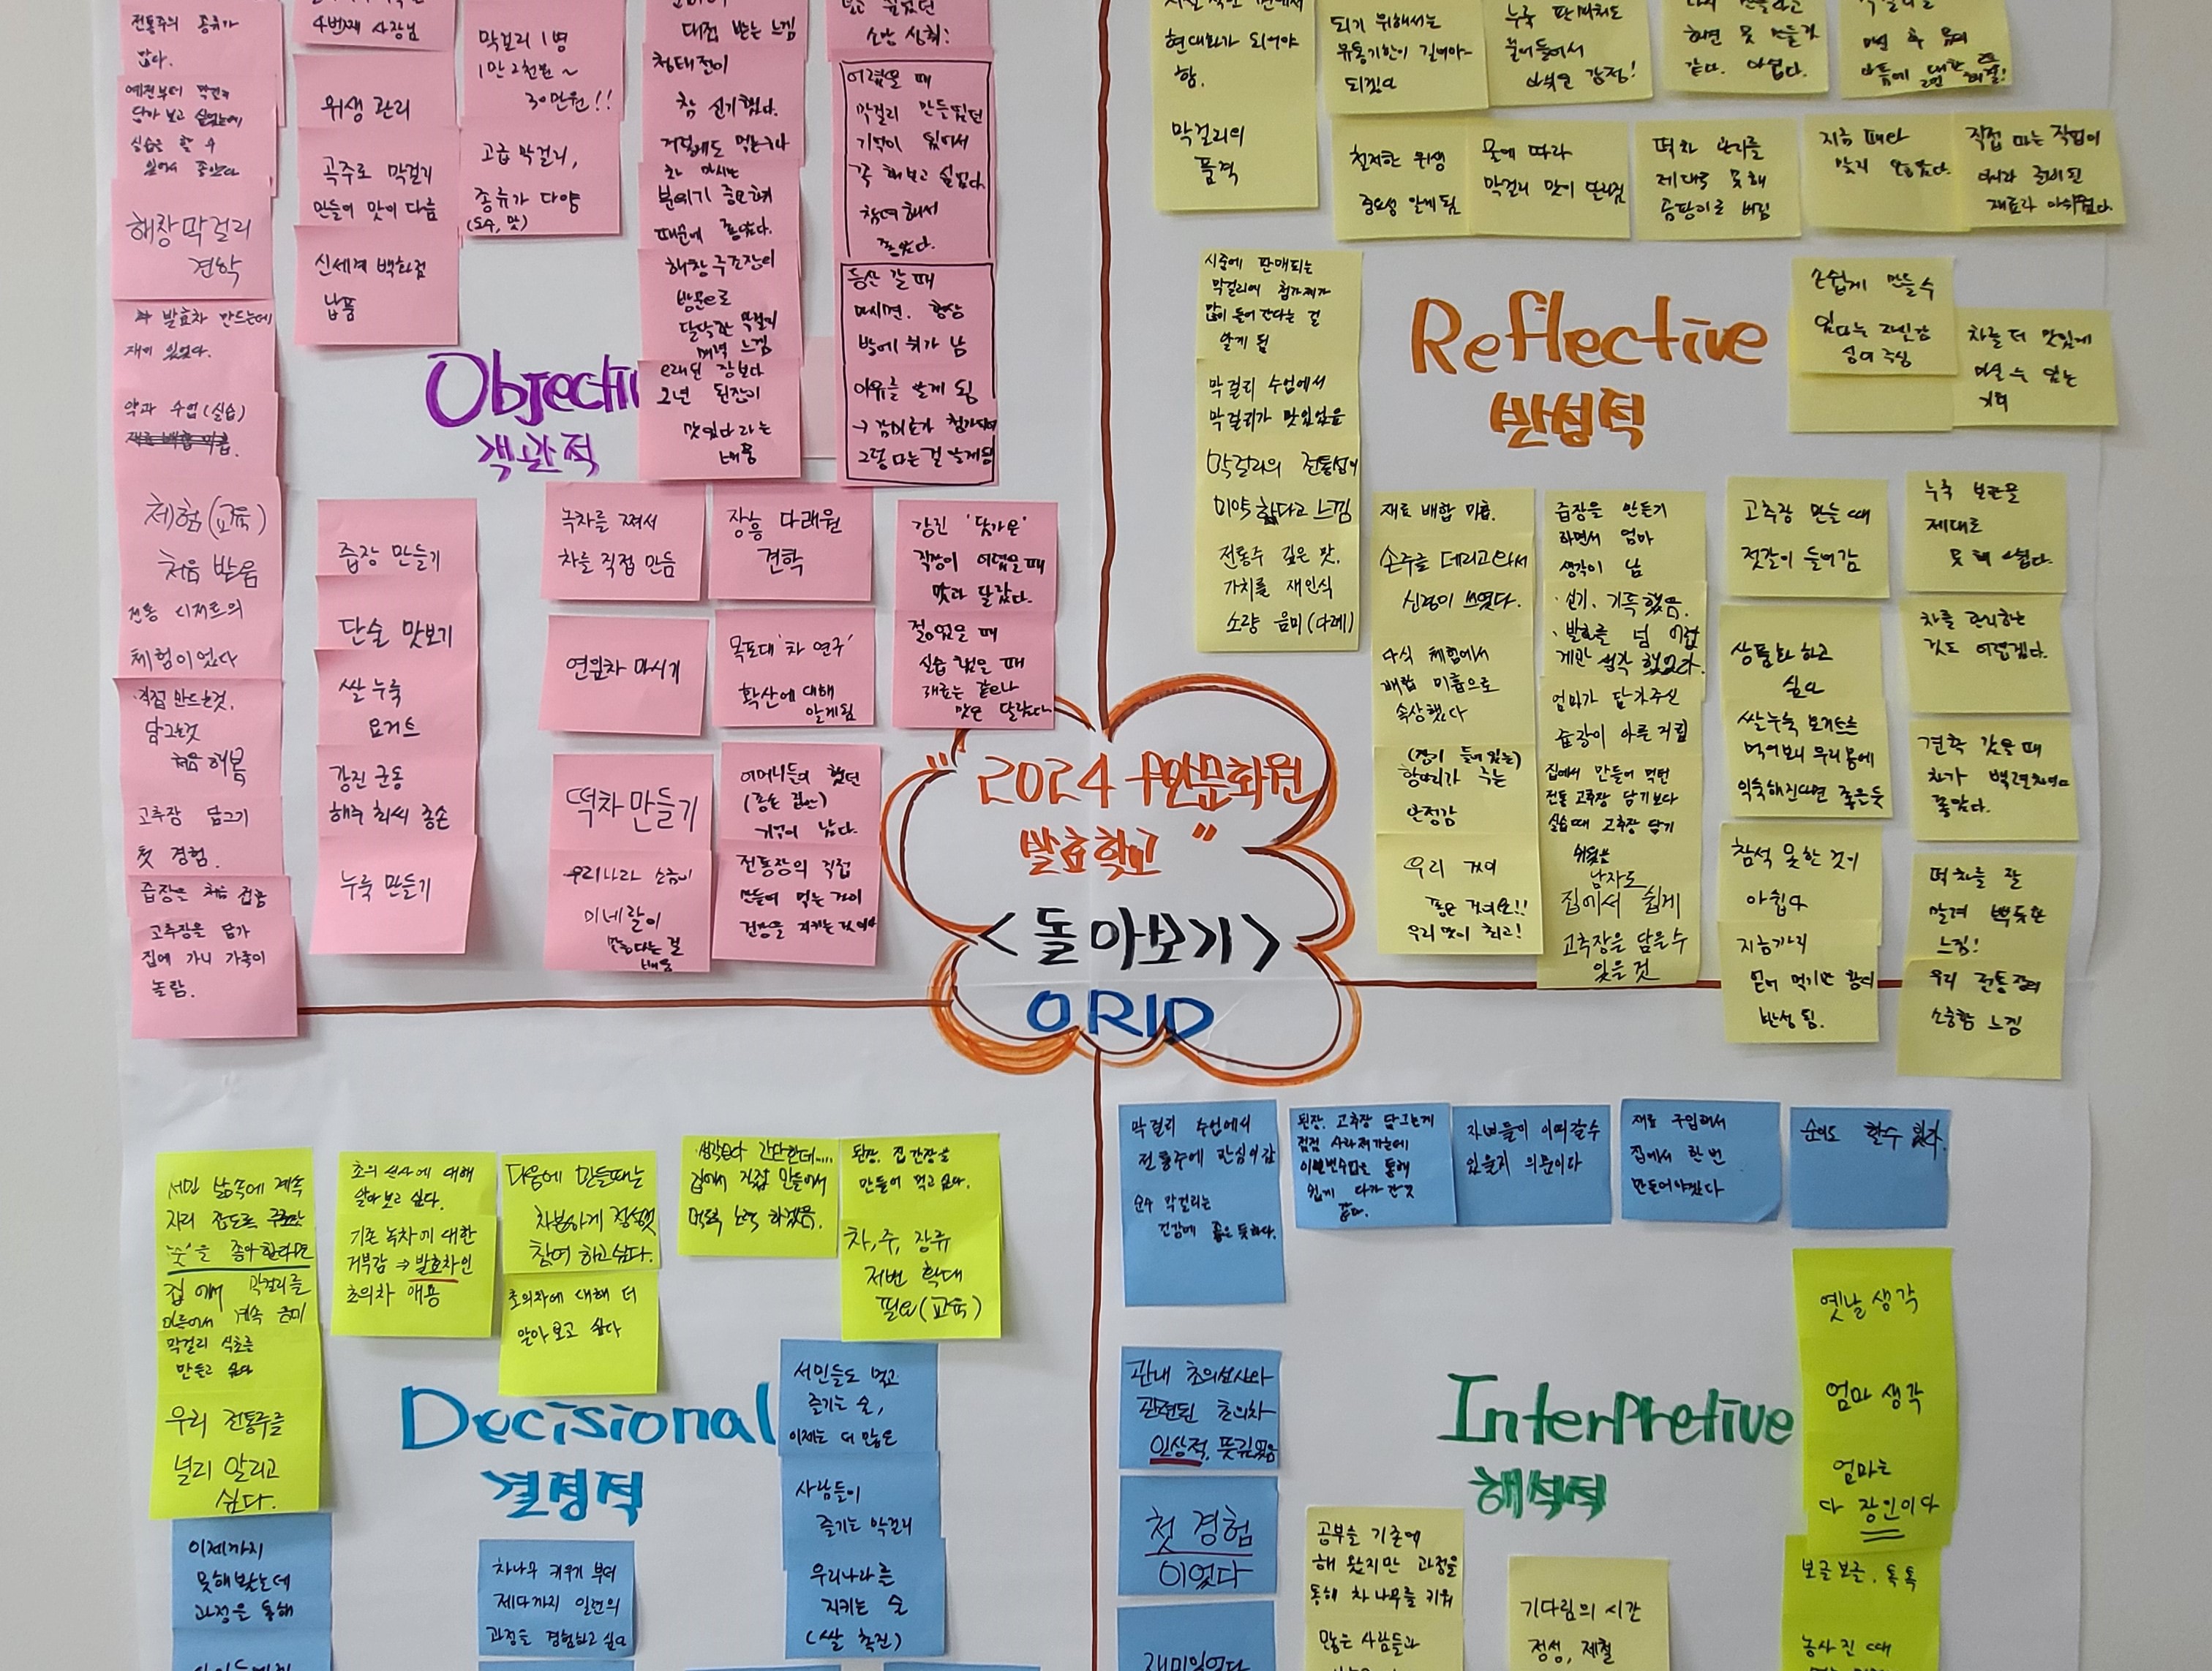 전통주의 종류가
많다.
예전부터 막걸리
담가 보고 싶었는데
실습을 할 수
있어서 좋았다
해창막걸리
견학
발효차 만드는데
재미 있었다.
약과 수업(실습)
재료 배합 미흡.
체험(교육)
처음 받음
전통 디저트의
체험이었다
직접 만드는것,
담그는것
처음 해봄
고추장 담그기
첫 경험.
즙장은 처음 접함
고추장을 담가
집에 가니 가족이
놀람.
4번째 사장님
위생 관리
곡주로 막걸리
만들어 맛이 다름
신세계 백화점
납품
막걸리 1병
1만 2천원~
30만원!!
고급 막걸리,
종류가 다양
(도수, 맛)
대접 받는 느낌
청태전이
참 신기했다.
차 마시는
분위기 중요하기
때문에 좋았다.
해창주조장의
방문으로
달달한 막걸리
매력 느낌
오래된 장보다
2년 된장이
맛있다라는
배움
소망 성취!
어렸을 때
막걸리 만들었던
기억이 있어서
꼭 해보고 싶었다
참여해서
좋았다.
등산 갈 때
마시면. 항상
밖에 취가 남
이유를 알게 됨
→ 감미료가 첨가되어
그렇다는 걸 알게됨
Objecti
객관적
즙장 만들기
단술 맛보기
쌀누룩
요거트
강진 군동
해주 최씨 종손
누룩 만들기
녹차를 쪄서
차를 직접 만듬
장흥 다래원
견학
강진 '닷가온'
직장이 어렸을 때
맛과 달랐다.
연잎차 마시기
목포대 '차 연구'
확산에 대해
알게됨
젊었을 때
실습 했을 때
재료는 같으나
맛은 달랐다
떡차 만들기
어머니들의 했던
(종손 집안)
기억이 났다.
우리나라 소금이
미네랄이
많다는걸
배움
전통장의 직접
만들어 먹는 것이
건강을 지키는 것이다
현대화가 되어야
함.
막걸리의
품격
되기 위해서는
유통기한이 길어야
되겠다
누룩 판매처도
하면 못 만들것
같다. 아쉽다.
철저한 위생
중요성 알게됨
물에 따라
막걸리 맛이 달라짐
떡차 관리를
제대로 못해
곰팡이로 버림
지금 때라
맞지 않았다.
직접 따는 작업이
아니라 준비된
재료라 아쉬웠다.
시중에 판매되는
막걸리에 첨가제가
많이 들어 간다는 걸
알게 됨
막걸리 수업에서
막걸리가 맛있었음
막걸리의 전통성이
미약하다고 느낌
전통주 깊은 맛,
가치를 재인식
소량 음미(다례)
Reflective
반성적
손쉽게 만들 수
있다는 자신감
심어 주심
차를 더 맛있게
마실 수 있는
기회
재료 배합 미흡.
손주를 데리고 와서
신경이 쓰였다.
다식 체험에서
배합 미흡으로
속상했다
(장이 들어 있는)
항아리가 주는
안정감
우리 것이
좋은 것이요!!
우리 맛이 최고!
즙장을 만들기
하면서 엄마
생각이 남
· 신기, 기특했음.
· 발효를 넘 어렵
게만 생각했었다.
엄마가 담가주신
즙장이 아른거림
집에서 만들어 먹던
전통 고추장 담기보다
실습때 고추장 담기
쉬웠음
남자도
집에서 쉽게
고추장을 담을수
있을것
고추장 만들 때
젓갈이 들어감
상품화 하고
싶다
쌀누룩 요거트를
먹어보니 우리몸에
익숙해진다면 좋은듯
참석 못한 것이
아쉽다
지금까지
얻어 먹기만 함이
반성 됨.
누룩 보관을
제대로
못해 아쉽다.
차를 관리하는
것도 어렵겠다.
견학 갔을 때
좋았다.
떡차를 잘
말려 뿌듯한
느낌!
우리 전통장의
소중함 느낌
"2024 무안문화원
발효학교"
<돌아보기>
ORID
서민 남중에 계속
'술'을 좋아한다면
집에서 막걸리를
막걸리 식초를
만들고 싶다
우리 전통주를
널리 알리고
싶다.
이제까지
못해봤는데
과정을 통해
초의 선사에 대해
알아보고 싶다.
기존 녹차에 대한
거부감 → 발효차인
초의차 애용
다음에 만들때는
차분하게 정성껏
참여 하고싶다.
초의차에 대해 더
알아 보고 싶다
생각보다 간단한데....
집에서 직접 만들어서
먹도록 노력 하겠음.
된장, 집 간장을
만들어 먹고 싶다.
차, 주, 장류
저변 확대
필요(교육)
Decisional
결정적
서민들도 먹고
즐기는 술,
이제는 더 많은
사람들이
즐기는 막걸리
우리나라를
지키는 술
(쌀 촉진)
차나무 키우기 부터
제다까지 일련의
과정을 경험하고 싶다
막걸리 수업에서
전통주에 관심이 감
순수 막걸리는
건강에 좋은 듯하다.
된장, 고추장 담그는게
점점 사라져가는데
이번수업을 통해
쉽게 다가간것
같다.
자녀들이 이어갈수
있을지 의문이다
재료 구입해서
집에서 한 번
만들어야겠다
할수 있다.
관내 초의선사와
관련된 초의차
인상적, 뜻깊었음
첫 경험
이었다
재미있었다
Interpretive
해석적
공부를 기존에
해 왔지만 과정을
통해 차 나무를 키워
많은 사람들과
기다림의 시간
정성, 제철
옛날 생각
엄마 생각
엄마는
다 장인이다
보글보글, 톡톡
농사진 때